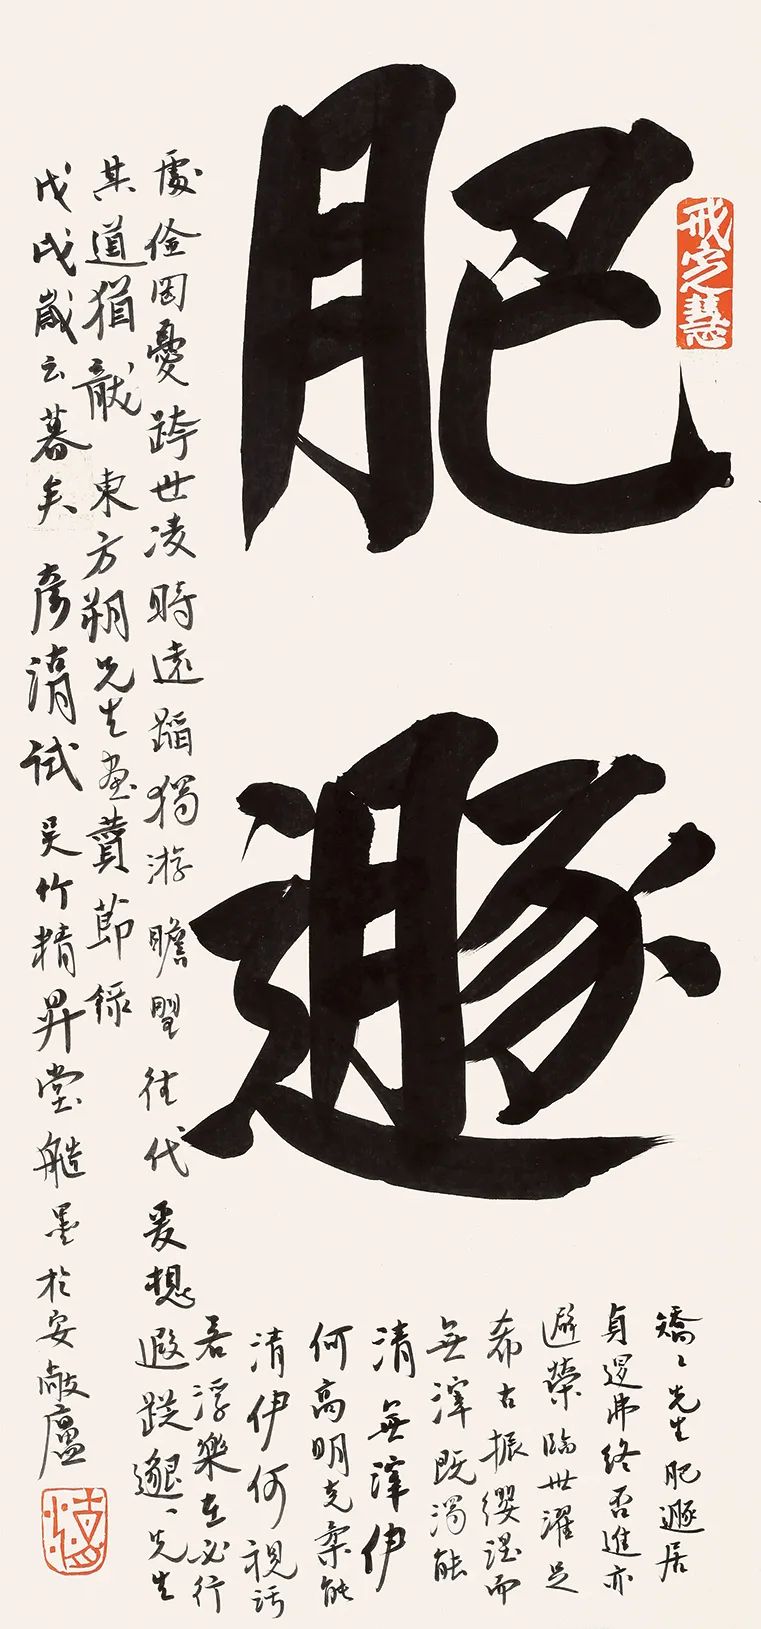 肥遯
戒定慧
矯〻先生肥遯居
貞退弗終否進亦
避榮臨世濯足
希古振纓涅而
無滓既濁能
清無滓伊
何高明克柔能
清伊何視汙
若浮樂在必行
處儉罔憂跨世凌時遠蹈獨游瞻望往代爰想遐蹤邈〻先生
其道猶龍 東方朔先生畫贊節錄
戊戌歲云暮矣 彥清試吳竹精昇堂艁墨於安敲廬